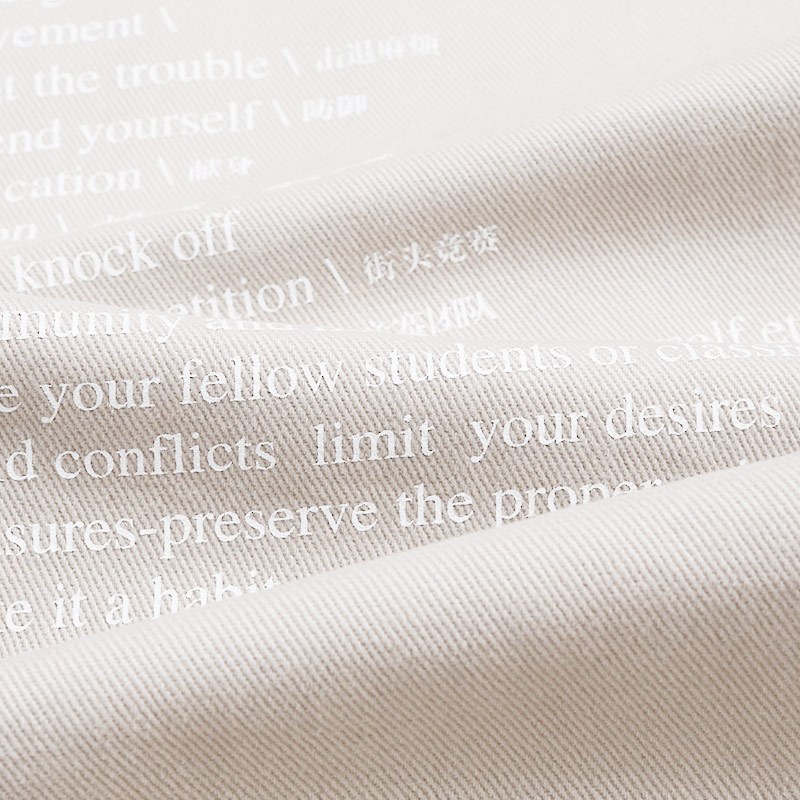 vement \
t the trouble \ 击退麻烦
end yourself \ 防御
cation \ 献身
on \
knock off
etition \ 街头竞赛
mmunity and 竞赛团队
self et
e your fellow students or classm
nd conflicts limit your desires
sures-preserve the proper
e it a habit